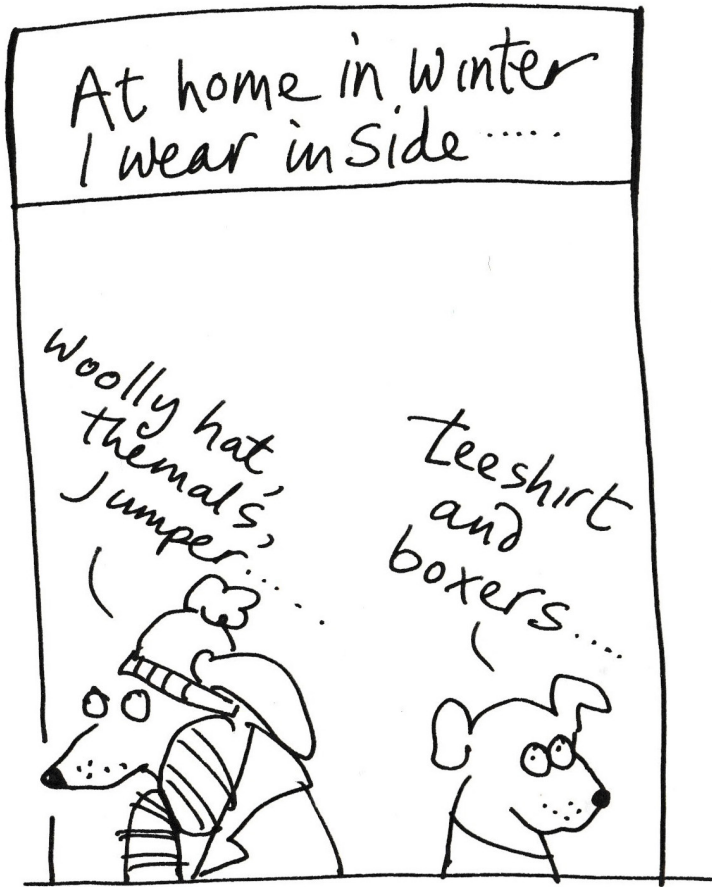 At home in winter
I wear inside .....
Woolly hat,
themal's,
Jumper.....
teeshirt
and
boxers....